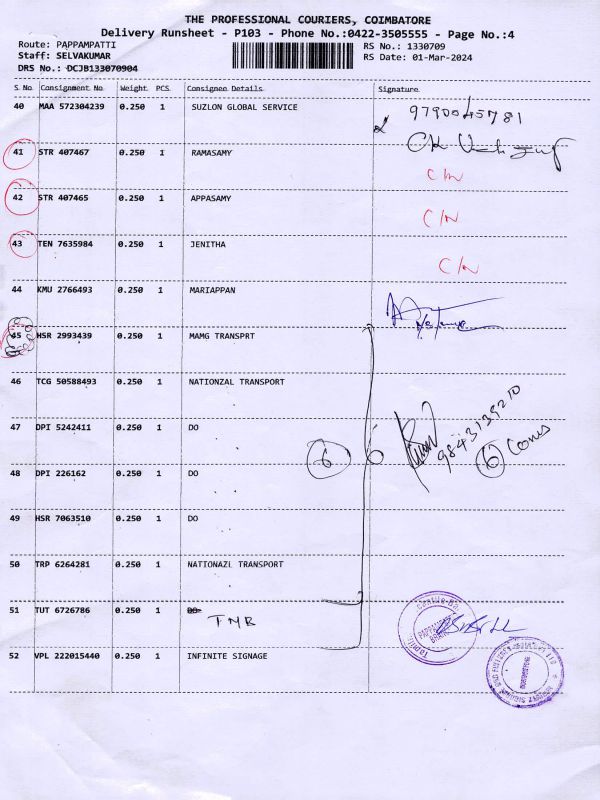 THE PROFESSIONAL COURIERS, COIMBATORE
Delivery Runsheet - P103 - Phone No.:0422-3505555 - Page No.:4
Route: PAPPAMPATTI RS No.: 1330709
Staff: SELVAKUMAR RS Date: 01-Mar-2024
DRS No.: DCJB133070904
S.No Consignment No Weight PCS Consignee Details Signature
40 MAA 572304239 0.250 1 SUZLON GLOBAL SERVICE 9790045781
41 STR 407467 0.250 1 RAMASAMY C/N
42 STR 407465 0.250 1 APPASAMY C/N
43 TEN 7635984 0.250 1 JENITHA C/N
44 KMU 2766493 0.250 1 MARIAPPAN
45 HSR 2993439 0.250 1 MAMG TRANSPRT
46 TCG 50588493 0.250 1 NATIONZAL TRANSPORT
47 DPI 5242411 0.250 1 DO 6 6 9843139210
6 Cons
48 DPI 226162 0.250 1 DO
49 HSR 7063510 0.250 1 DO
50 TRP 6264281 0.250 1 NATIONAZL TRANSPORT
51 TUT 6726786 0.250 1 DO
TMB
52 VPL 222015440 0.250 1 INFINITE SIGNAGE